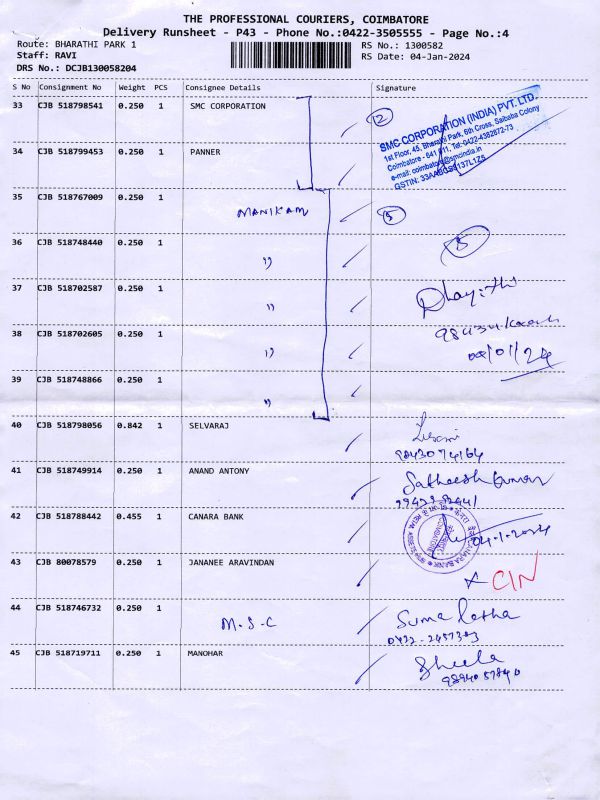 THE PROFESSIONAL COURIERS, COIMBATORE
Delivery Runsheet - P43 - Phone No.:0422-3505555 - Page No.:4
Route: BHARATHI PARK 1 RS No.: 1300582
Staff: RAVI RS Date: 04-Jan-2024
DRS No.: DCJB130058204
S No Consignment No Weight PCS Consignee Details Signature
33 CJB 518798541 0.250 1 SMC CORPORATION
12
SMC CORPORATION (INDIA) PVT. LTD.
1st Floor, 45, Bharathi Park, 6th Cross, Saibaba Colony
Coimbatore - 641 011, Tel: 0422-4382872-73
34 CJB 518799453 0.250 1 PANNER
35 CJB 518767009 0.250 1 MANIKAM 5
36 CJB 518748440 0.250 1 " 5
37 CJB 518702587 0.250 1 "
38 CJB 518702605 0.250 1 "
39 CJB 518748866 0.250 1 "
40 CJB 518798056 0.842 1 SELVARAJ
41 CJB 518749914 0.250 1 ANAND ANTONY Satheesh kumar
42 CJB 518788442 0.455 1 CANARA BANK 04-1-2024
43 CJB 80078579 0.250 1 JANANEE ARAVINDAN CIN
44 CJB 518746732 0.250 1 M.S.C Suma latha
45 CJB 518719711 0.250 1 MANOHAR Sheela